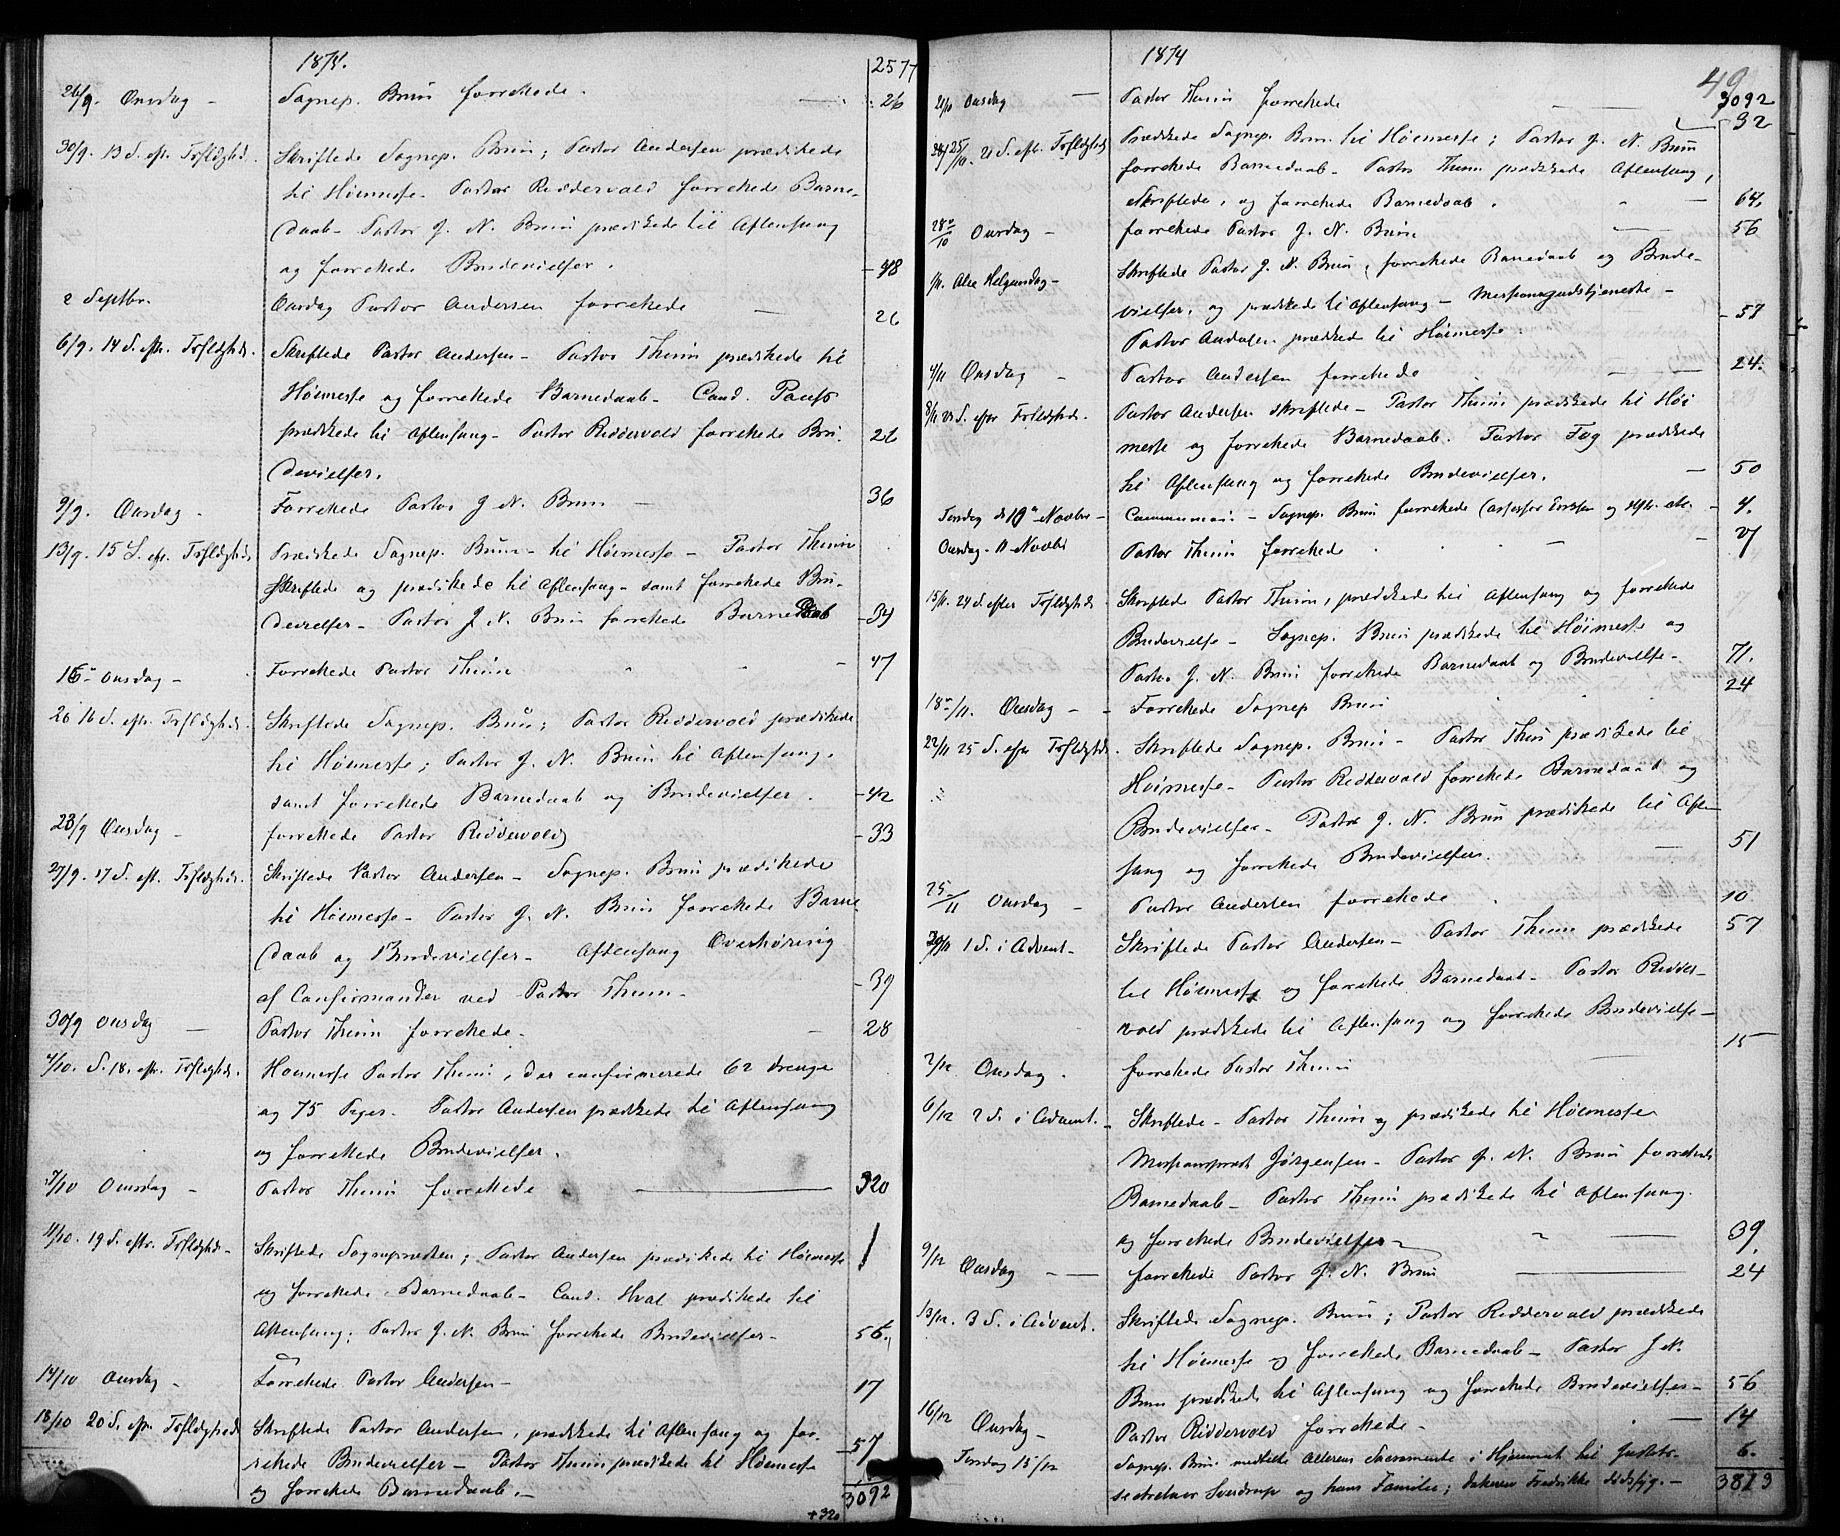 1874.
2577
26/9. Onsdag - Sognep. Bruun forrettede. 26
30/9. 13 S. eft. Trefoldighed. Skriftede Sognep. Bruun; Pastor Andersen prædikede
til Høimesse - Pastor Riddervold forrettede Barne-
daab - Pastor J. N. Bruun prædikede til Aftensang
og forrettede Brudevielser. 48
2 Septbr. Onsdag Pastor Andersen forrettede 26
6/9. 14 S. eftr. Trefoldighed. Skriftede Pastor Andersen - Pastor Thurn prædikede til
Høimesse og forrettede Barnedaab - Cand. Paus
prædikede til Aftensang - Pastor Riddervold forrettede Bru- 26
devielser.
9/9. Onsdag - Forrettede Pastor J. N. Bruun - 36
13/9. 15 S. eftr. Trefoldighed. Prædikede Sognep. Bruun - til Høimesse - Pastor Thurn
Skriftede og prædikede til Aftensang - samt forrettede Bru-
devielser - Pastor J. N. Bruun forrettede Barnedaab 34
16 Onsdag - Forrettede Pastor Thurn 47
20 16 S. eftr. Trefoldighed. Skriftede Sognep. Bruun; Pastor Riddervold prædikede
til Høimesse; Pastor J. N. Bruun til Aftensang,
samt forrettede Barnedaab og Brudevielser. 42
23/9 Onsdag - forrettede Pastor Riddervold 33
27/9. 17 S. eft. Trefoldighed. Skriftede Pastor Andersen - Sognep. Bruun prædikede
til Høimesse - Pastor J. N. Bruun forrettede Barne
daab og Brudevielser - Aftensang Overhøring
af Confirmander ved Pastor Thurn - 39
30/9 Onsdag - Pastor Thurn forrettede - 28
4/10. S. 18. eftr. Trefoldighed. Høimesse Pastor Thurn, der confirmerede 62 Drenge
og 75 Piger. Pastor Andersen prædikede til Aftensang
og forrettede Brudevielser.
7/10 Onsdag - Pastor Thurn forrettede 320
11/10. 19 S. eftr. Trefoldigh. - Skriftede Sognepræsten; Pastor Andersen prædikede til Høimesse
og forrettede Barnedaab - Cand. Hval prædikede til
Aftensang; Pastor J. N. Bruun forrettede Brudevielser - 56
14/10 Onsdag - Forrettede Pastor Andersen - 17
18/10 20 S. eftr. Trefoldighed Skriftede Pastor Andersen, prædikede til Aftensang og for-
rettede Brudevielser - Pastor Thurn prædikede til Høimesse 57
og forrettede Barnedaab. - 3092
+320
1874
49
3092
21/10 Onsdag - Pastor Thurn forrettede 32
25/10. 21 S. eft. Trefoldighed Prædikede Sognep. Bruun til Høimesse; Pastor J. N. Bruun
forrettede Barnedaab - Pastor Thurn prædikede Aftensang,
Skriftede, og forrettede Barnedaab. 64.
28/10 Onsdag - forrettede Pastor J. N. Bruun 56
1/11. Alle Helgensdag - Skriftede Pastor J. N. Bruun, forrettede Barnedaab og Brude-
vielser, og prædikede til Aftensang - Missionsgudstjeneste - 57
Pastor Andersen prædiked til Høimesse.
4/11 Onsdag - Pastor Andersen forrettede 24.
8/11 23 S. efter Trefoldighed. Pastor Andersen skriftede - Pastor Thurn prædikede til Høi
messe og forrettede Barnedaab. Pastor Fog prædikede
til Aftensang og forrettede Brudevielser. 50
Tirsdag d. 10 Novbr - Communion - Sognep. Bruun forrettede 4.
Onsdag - 11 Novbr Pastor Thurn forrettede 27
15/11. 24 S. efter Trefoldighed. Skriftede Pastor Thurn, prædikede til Aftensang og forrettede
Brudevielse - Sognep. Bruun prædikede til Høimesse og
Pastor J. N. Bruun forrettede Barnedaab og Brudevielse - 71.
18/11. Onsdag - Forrettede Sognep Bruun 24
22/11 25 S. efter Trefoldighed. Skriftede Sognep. Bruun - Pastor Thurn prædikede til
Høimesse - Pastor Riddervold forrettede Barnedaab og
Brudevielser - Pastor J. N. Bruun prædikede til Aften-
sang og forrettede Brudevielser. 51
25/11 Onsdag - Pastor Andersen forrettede 10
29/11 1 S. i Advent - Skriftede Pastor Andersen - Pastor Thurn prædikede 57
til Høimesse og forrettede Barnedaab - Pastor Ridder-
vold prædikede til Aftensang og forrettede Brudevielse -
2/12 Onsdag. forrettede Pastor Thurn 15
6/12 2 S. i Advent. - Skriftede - Pastor Thurn og prædikede til Høimesse
Missionsprest Jørgensen - Pastor J. N. Bruun forrettede
Barnedaab - Pastor Thurn prædikede til Aftensang.
og forrettede Brudevielser - 39.
9/12 Onsdag - forrettede Pastor J. N. Bruun 24
13/12. 3 S. i Advent. Skriftede Sognep. Bruun; Pastor Riddervold prædikede
til Høimesse og forrettede Barnedaab - Pastor J N.
Bruun prædikede til Aftensang og forrettede Brudevielser - 56
16/12 Onsdag - Pastor Riddervold forrettede - 14
Tirsdag 15/12 Sognep. Bruun meddelte Alterens Sacramente i Hjemmet til 6.
Sverdrup og hans Familie; Datteren Fredrikke dødssyg. - 3813